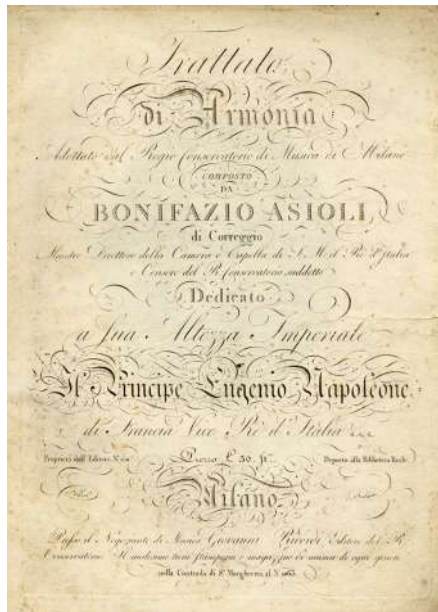 Trattato
di Armonia
Adottato dal Regio Conservatorio di Musica di Milano
COMPOSTO
DA
BONIFAZIO ASIOLI
di Correggio
Maestro Direttore della Camera e Capella di S. M. il Re d'Italia
e Censore del R. Conservatorio suddetto
Dedicato
a Sua Altezza Imperiale
Il Principe Eugenio Napoleone
di Francia Vice Rè d'Italia
Proprietà dell'Editore. Prezzo 30. Deposto alla Biblioteca Reale
Milano
Presso il Negoziante di Musica Giovanni Ricordi Editore del R.
Conservatorio il medesimo tiene Stamperia e magazzino di musica di ogni genere
nella Contrada di Sta. Margherita al N.